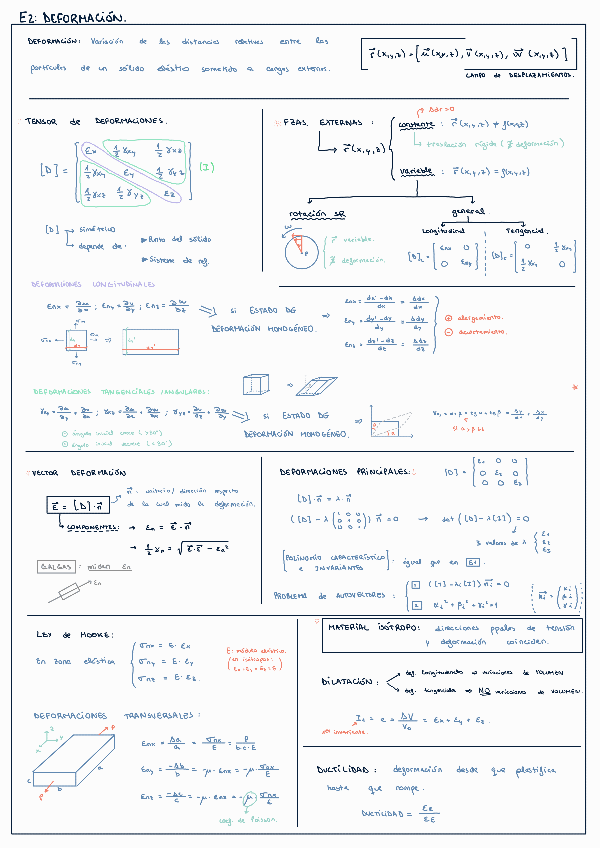 E2: DEFORMACIÓN.
DEFORMACIÓN: Variación de las distancias relativas entre las
partículas de un sólido elástico sometido a cargas externas.
r⃗(x,y,z) = [u⃗(x,y,z), v⃗(x,y,z), w⃗(x,y,z)]
CAMPO DE DESPLAZAMIENTOS.
TENSOR de DEFORMACIONES.
[D] = [εx ½γxy ½γxz
½γxy εy ½γyz
½γxz ½γyz εz] (I)
[D] → simétrico
→ depende de:
▶ Punto del sólido
▶ Sistema de ref.
FZAS. EXTERNAS:
→ r⃗(x,y,z)
Δdr=0
constante: r⃗(x,y,z) ≠ f(x,y,z)
→ traslación rígida (∄ deformación)
variable: r⃗(x,y,z) = f(x,y,z)
rotación SR
general
r⃗ variable.
∄ deformación.
Longitudinal
Tangencial.
[D]L = [εnx 0
0 εny]
[D]t = [0 ½γxy
½γxy 0]
DEFORMACIONES LONGITUDINALES
εnx = ∂u/∂x ; εny = ∂v/∂y ; εnz = ∂w/∂z
si ESTADO DE
DEFORMACIÓN HOMOGÉNEO.
εnx = dx'-dx/dx = Δdx/dx
εny = dy'-dy/dy = Δdy/dy
εnz = dz'-dz/dz = Δdz/dz
⊕ alargamiento.
⊖ acortamiento.
DEFORMACIONES TANGENCIALES/ANGULARES:
γxy = ∂u/∂y + ∂v/∂x ; γxz = ∂u/∂z + ∂w/∂x ; γyz = ∂v/∂z + ∂w/∂y
si ESTADO DE
DEFORMACIÓN HOMOGÉNEO.
ángulo inicial crece (>90º)
ángulo inicial decrece (<90º)
VECTOR DEFORMACIÓN
ε⃗ = [D]·n⃗
n⃗: unitario/dirección respecto
de la cual mido la deformación.
COMPONENTES: → εn = ε⃗·n⃗
→ ½γn = √(ε⃗·ε⃗ − εn²)
GALGAS: miden εn
εn
DEFORMACIONES PRINCIPALES:
[D] = [ε1 0 0
0 ε2 0
0 0 ε3]
[D]·n⃗ = λ·n⃗
([D] − λ(1 0 0
0 1 0
0 0 1)) n⃗ = 0 → det([D]−λ[I]) = 0
3 valores de λ {ε1
ε2
ε3
[POLINOMIO CARACTERÍSTICO
e INVARIANTES]: igual que en E1.
PROBLEMA de AUTOVECTORES:
1 ([T]−λi[I]) n⃗i = 0
2 αi²+βi²+γi²=1
n⃗i = (αi
βi
γi)
LEY de HOOKE:
En zona elástica
σnx = E·εx
σny = E·εy
σnz = E·εz
E: módulo elástico.
(en isótropos:)
Ex=Ey=Ez=E
MATERIAL ISÓTROPO: direcciones ppales de tensión
y deformación coinciden.
DILATACIÓN:
→ def. longitudinales → variaciones de VOLUMEN
→ def. tangenciales → NO variaciones de VOLUMEN.
I1 = e = ΔV/V0 = εx+εy+εz.
1er invariante.
DEFORMACIONES TRANSVERSALES:
z
x
y
P
a
b
c
P
εnx = Δa/a = σnx/E = P/b·c·E
εny = −Δb/b = −μ·εnx = −μ·σnx/E
εnz = −Δc/c = −μ·εnx = −μ·σnx/E
coef. de Poisson.
DUCTILIDAD: deformación desde que plastifica
hasta que rompe.
DUCTILIDAD = εR/εE